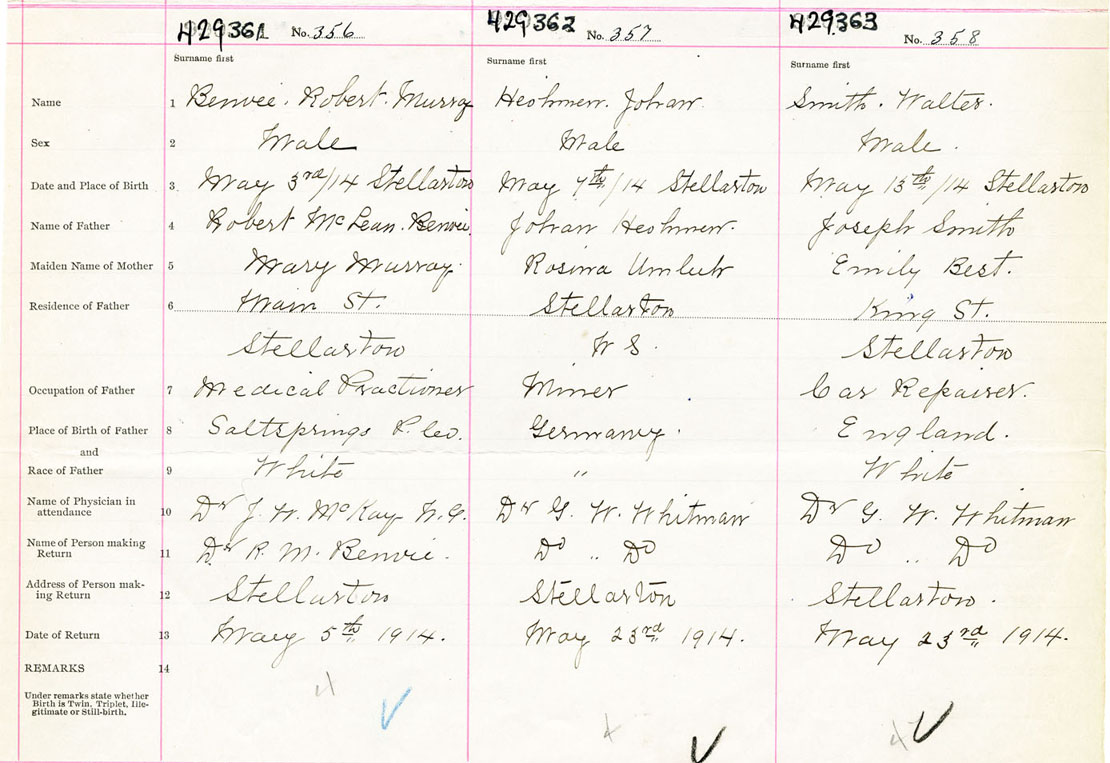 429361 No. 356 429362 No. 357 429363 No. 358
Surname first Surname first Surname first
Name 1 Benvie. Robert. Murray Heohmen. Johan. Smith. Walter.
Sex 2 Male Male Male.
Date and Place of Birth 3 May 3rd/14 Stellarton May 7th/14 Stellarton May 13th/14 Stellarton
Name of Father 4 Robert McLean. Benvie. Johan Heohmen. Joseph Smith
Maiden Name of Mother 5 Mary Murray. Rosina Emily Best.
Residence of Father 6 Main St. Stellarton King St.
Stellarton N S. Stellarton
Occupation of Father 7 Medical Practioner Miner Car Repairer.
Place of Birth of Father 8 Saltsprings P. Co. Germany. England.
and
Race of Father 9 White " White
Name of Physician in
attendance 10 Dr J. W. McKay N.G. Dr G. W. Whitman Dr G. W. Whitman
Name of Person making
Return 11 Dr R. M. Benvie. Do " Do Do " Do
Address of Person mak-
ing Return 12 Stellarton Stellarton Stellarton.
Date of Return 13 May 5th 1914. May 23rd 1914. May 23rd 1914.
REMARKS 14
Under remarks state whether
Birth is Twin, Triplet, Ille-
gitimate or Still-birth.